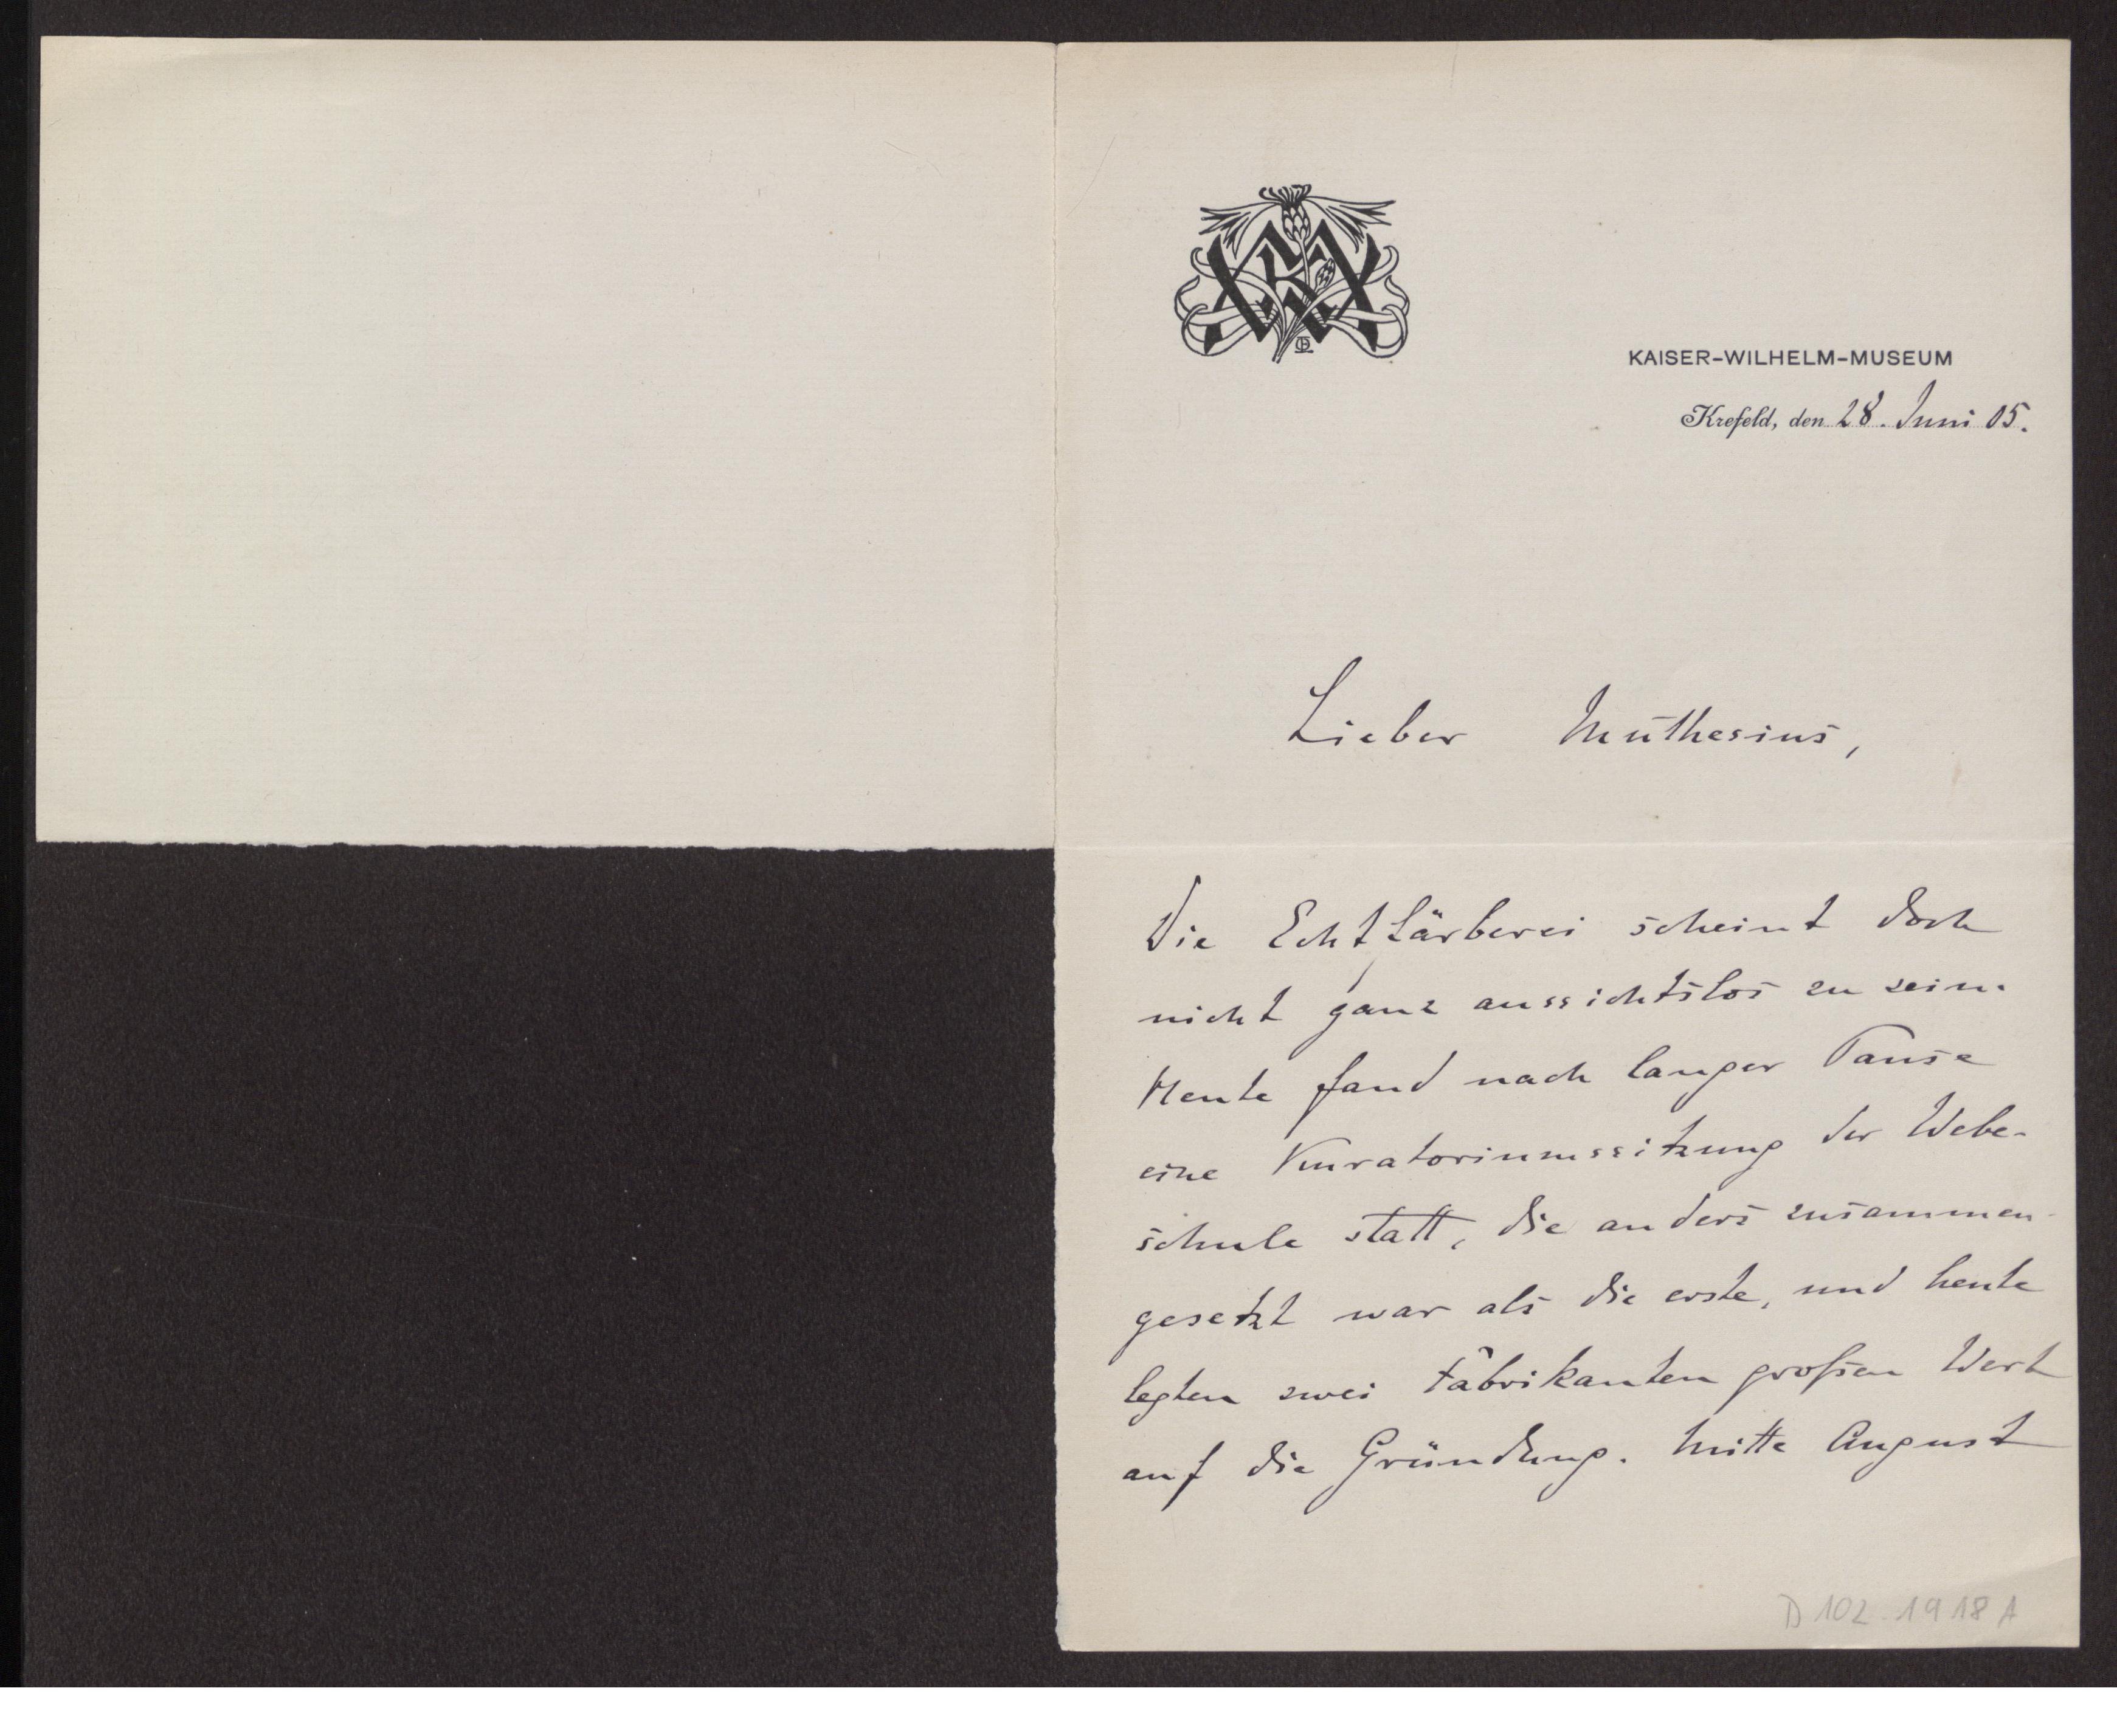 KAISER-WILHELM-MUSEUM
Krefeld, den 28. Juni 05.
Lieber Muthesius,
Die Echtfärberei scheint doch
nicht ganz aussichtslos zu sein.
Heute fand nach langer Pause
eine Kuratoriumssitzung der Webe-
schule statt, die anders zusammen-
gesetzt war als die erste, und heute
legten zwei Fabrikanten großen Wert
auf die Gründung. Mitte August
D 102-1918 A